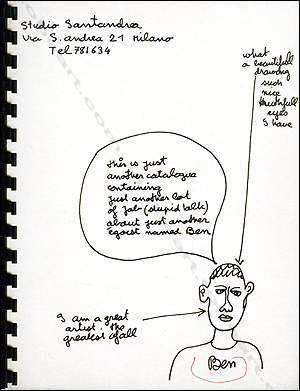 Studio Santandrea
Via S. andrea 21 Milano
Tel 781634
what
a beautifull
drawing
such
nice
thruthfull
eyes
I have
this is just
another catalogue
containing
just another lot
of Job (stupid talk)
about just another
egoist named Ben
I am a great
artist. the
greatest of all
Ben